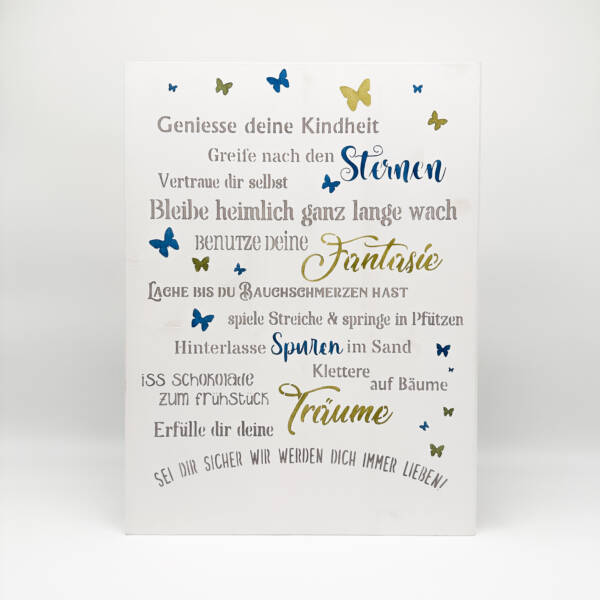 Geniesse deine Kindheit
Greife nach den Sternen
Vertraue dir selbst
Bleibe heimlich ganz lange wach
Benutze deine Fantasie
Lache bis du Bauchschmerzen hast
spiele Streiche & springe in Pfützen
Hinterlasse Spuren im Sand
Klettere auf Bäume
iss schokolade
zum frühstück
Erfülle dir deine Träume
SEI DIR SICHER WIR WERDEN DICH IMMER LIEBEN!